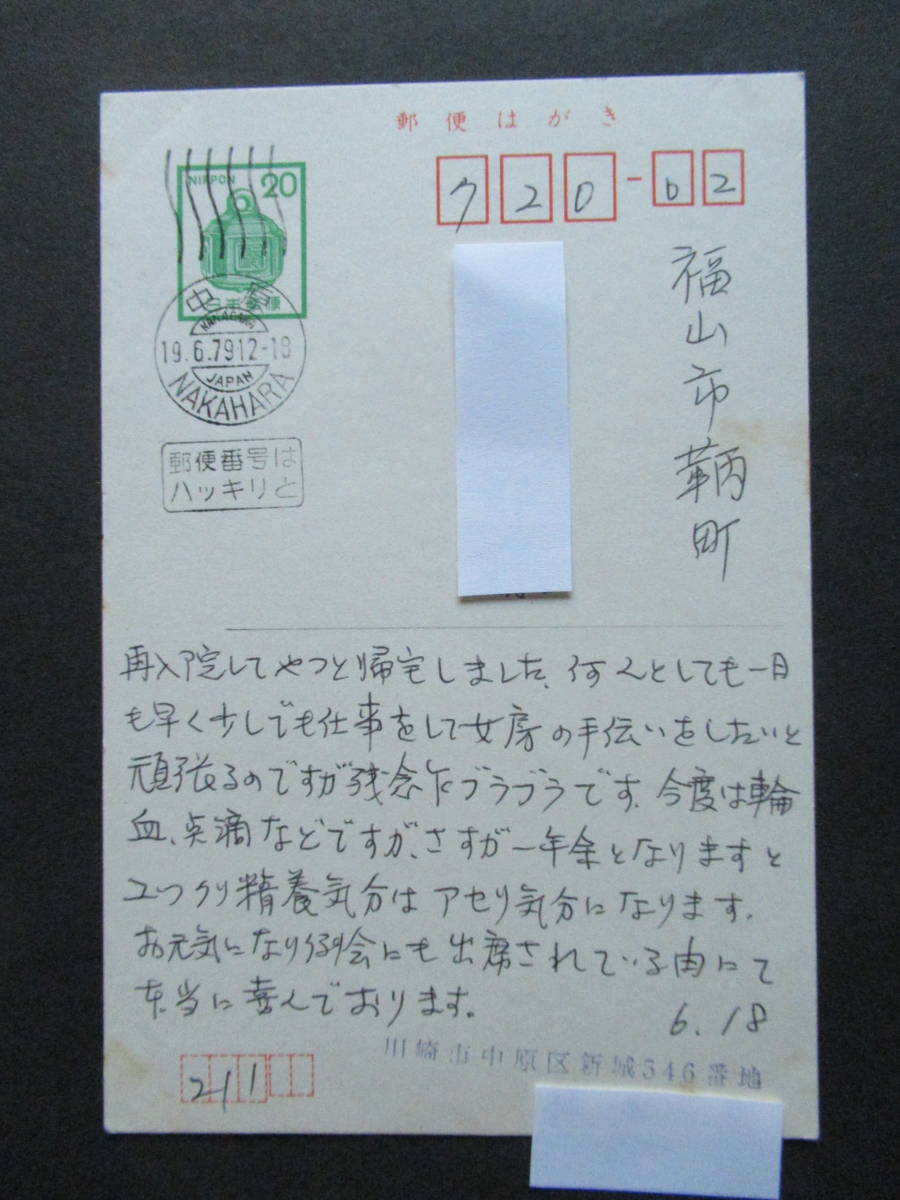 郵便はがき
NIPPON 20
日本郵便
720-02
中原
KANAGAWA
19.6.79 12-18
JAPAN
NAKAHARA
郵便番号は
ハッキリと
福山市鞆町
再入院してやっと帰宅しました、何んとしても一日
も早く少しでも仕事をして女房の手伝いをしたいと
頑張るのですが残念乍ブラブラです。今度は輪
血、点滴などですが、さすが一年余となりますと
ユックリ精養気分はアセリ気分になります。
お元気になり例会にも出席されている由にて
本当に喜んでおります。
6.18
川崎市中原区新城546番地
211